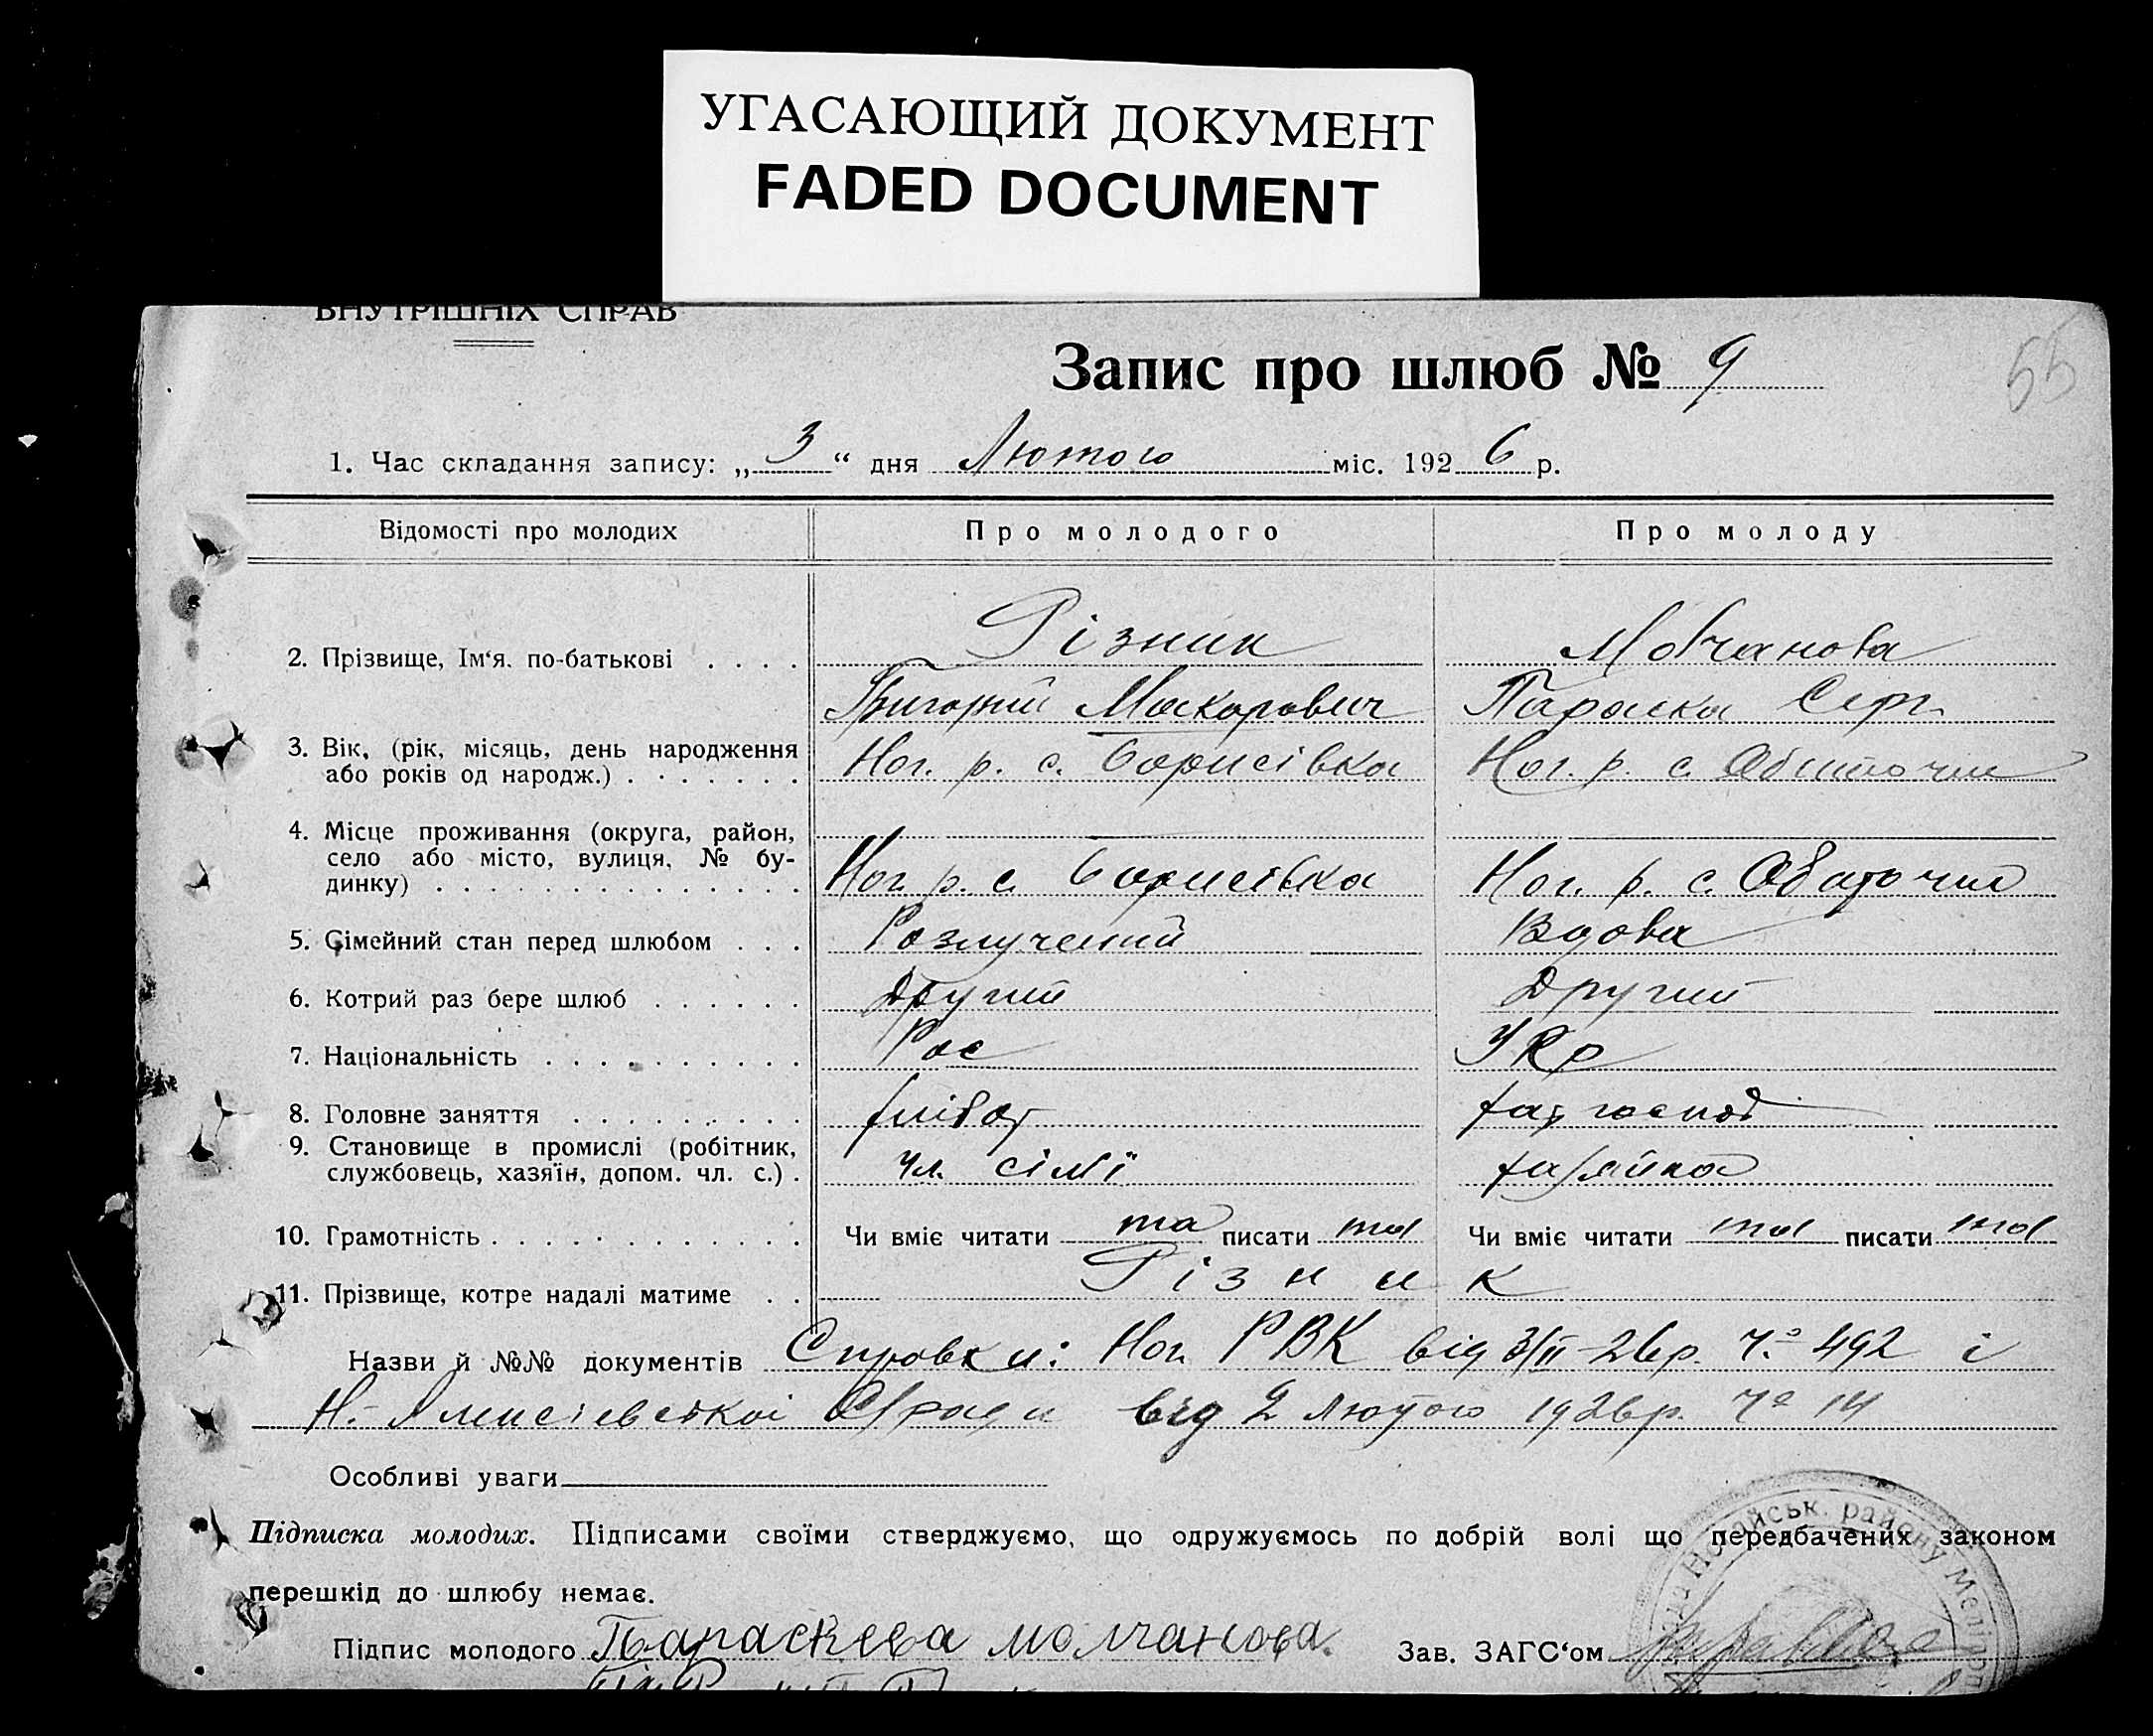 УГАСАЮЩИЙ ДОКУМЕНТ
FADED DOCUMENT
ВНУТРІШНІХ СПРАВ
Запис про шлюб № 9
55
1. Час складання запису: „3“ дня Лютого міс. 1926 р.
Відомості про молодих Про молодого Про молоду
Різник Мовчанова
2. Прізвище, Ім‘я. по-батькові . . . .
Григорий Макарович Параска
3. Вік, (рік, місяць, день народження
або років од народж.) . . . . . . .
Ног. р. с. Борисівка Ног. р. с.
4. Місце проживання (округа, район,
село або місто, вулиця, № бу-
динку) . . . . . . . . . . . . . . Ног. р. с. Борисівка Ног. р. с. Обиточна
5. Сімейний стан перед шлюбом . . . Розлучений Вдова
6. Котрий раз бере шлюб . . . . . . Другий Другий
7. Національність . . . . . . . . . . Рос Укр
8. Головне заняття . . . . . . . . . хлібор
9. Становище в промислі (робітник,
службовець, хазяїн, допом. чл. с.) . чл. сімї хазяйка
10. Грамотність . . . . . . . . . . . . Чи вміє читати та писати та Чи вміє читати та писати та
11. Прізвище, котре надалі матиме . . Різник
Назви й №№ документів Справки: Ног. РВК від 3/II-26р. Ч.° 492 і
від 2 Лютого 1926р. Ч° 14
Особливі уваги
Підписка молодих. Підписами своїми стверджуємо, що одружуємось по добрій волі що передбачених законом
перешкід до шлюбу немає.
Підпис молодого Параскева молчанова. Зав. ЗАГС‘ом
Ногайськ. району Меліто